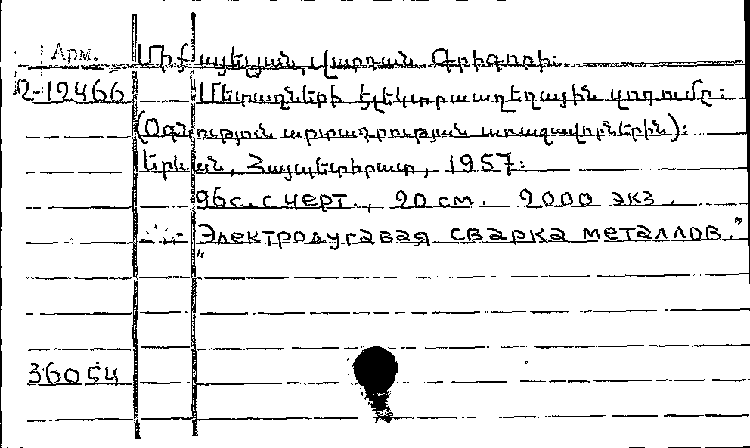 Арм.
Միքայելյան, Վարդան Գրիգորի:
Ձ-12466 Մետաղների էլեկտրաաղեղային զոդումը:
(Օգնություն արտադրության առաջավորներին):
Երևան, Հայպետհրատ, 1957:
96 с. с черт., 20 см. 2000 экз.
"Электродуговая сварка металлов."
36054